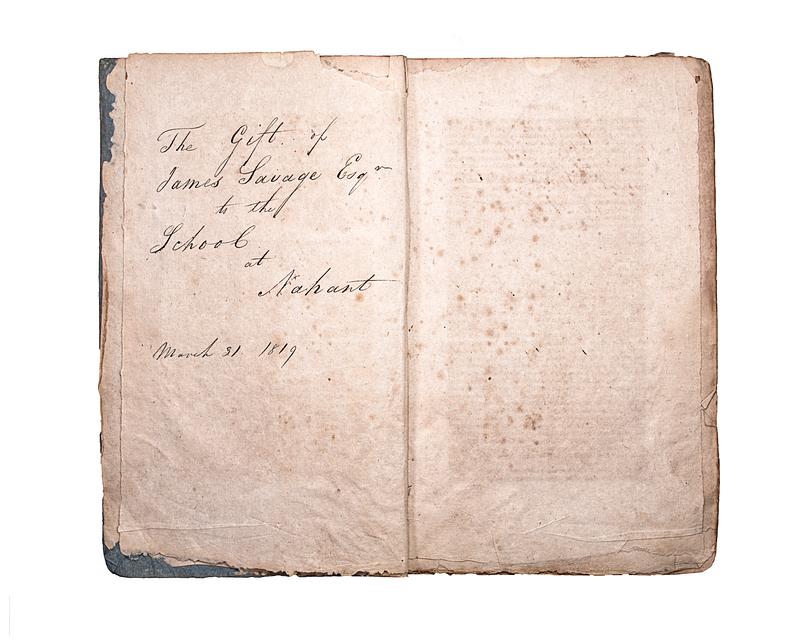 The Gift of
James Savage Esqr
to the
School
at
Nahant
March 31 1819